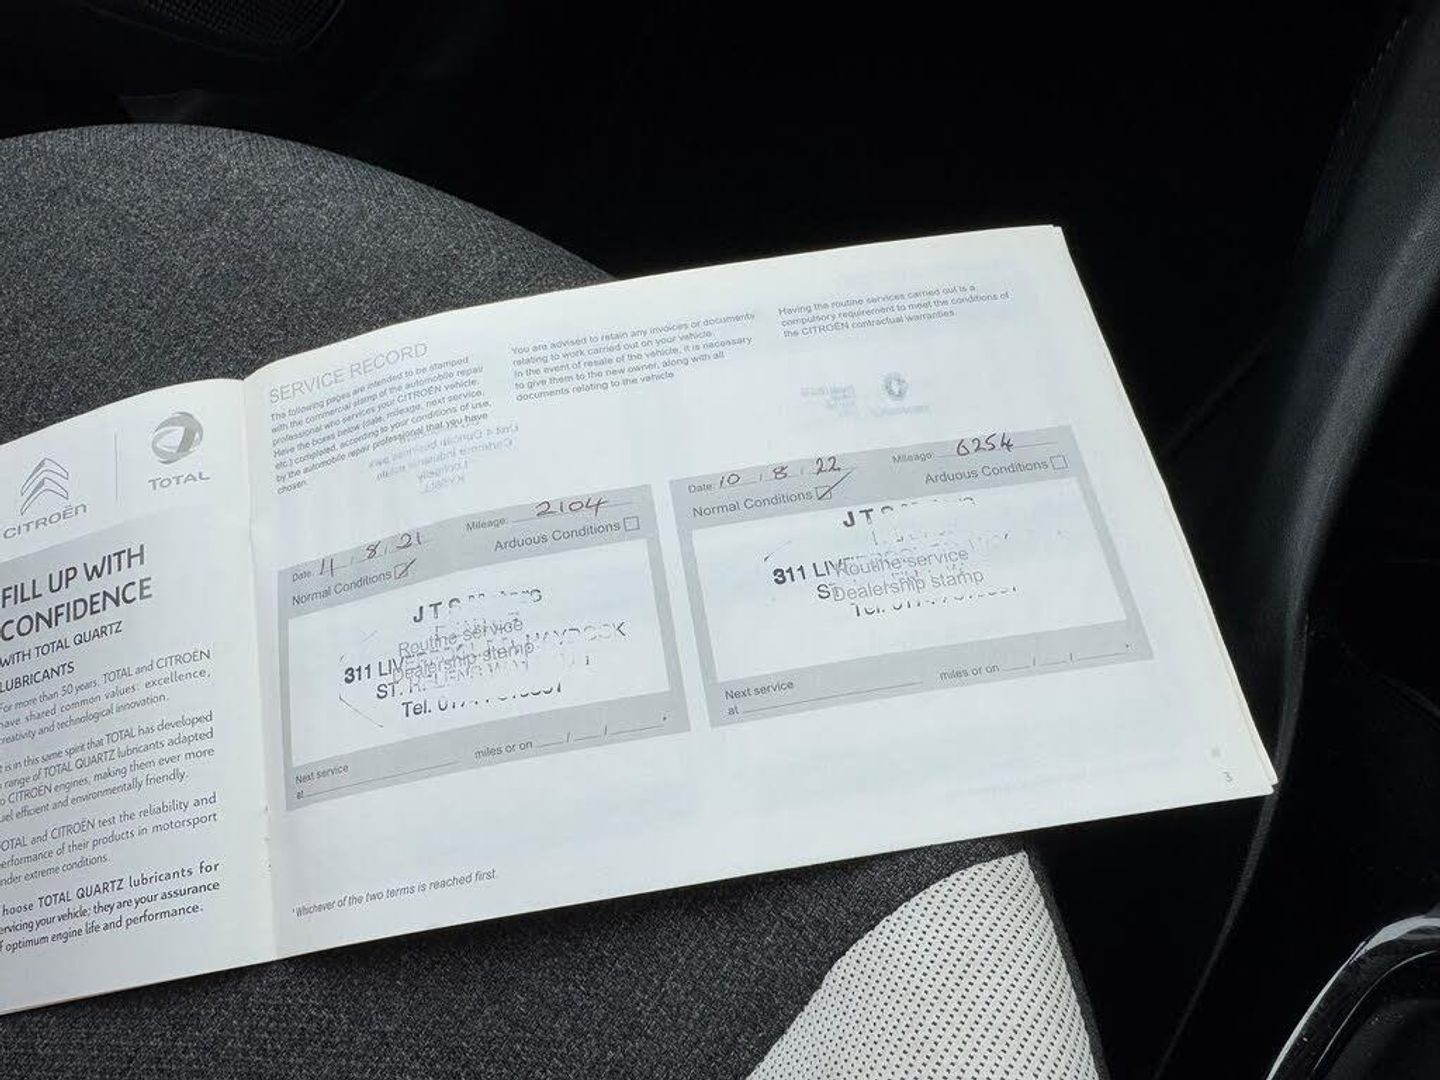 CITROËN
TOTAL
FILL UP WITH
CONFIDENCE
WITH TOTAL QUARTZ
LUBRICANTS
For more than 50 years, TOTAL and CITROËN
have shared common values: excellence,
creativity and technological innovation.
is in this same spirit that TOTAL has developed
range of TOTAL QUARTZ lubricants adapted
CITROËN engines, making them ever more
efficient and environmentally friendly.
OTAL and CITROËN test the reliability and
erformance of their products in motorsport
nder extreme conditions.
hoose TOTAL QUARTZ lubricants for
ervicing your vehicle; they are your assurance
f optimum engine life and performance.
SERVICE RECORD
The following pages are intended to be stamped
with the commercial stamp of the automobile repair
professional who services your CITROËN vehicle.
Have the boxes below (date, mileage, next service,
etc.) completed, according to your conditions of use,
by the automobile repair professional that you have
chosen.
You are advised to retain any invoices or documents
relating to work carried out on your vehicle.
In the event of resale of the vehicle, it is necessary
to give them to the new owner, along with all
documents relating to the vehicle
Having the routine services carried out is a
compulsory requirement to meet the conditions of
the CITROËN contractual warranties.
Date: 11 / 8 / 21 Mileage: 2104
Normal Conditions Arduous Conditions
J T S
Routine service
311 LIV
Dealership stamp
ST.
Tel.
Next service
at miles or on / / *
Date: 10 / 8 / 22 Mileage: 6254
Normal Conditions Arduous Conditions
J T
311 LIV Routine service
Dealership stamp
Tel.
Next service
at miles or on / / *
* Whichever of the two terms is reached first.
3